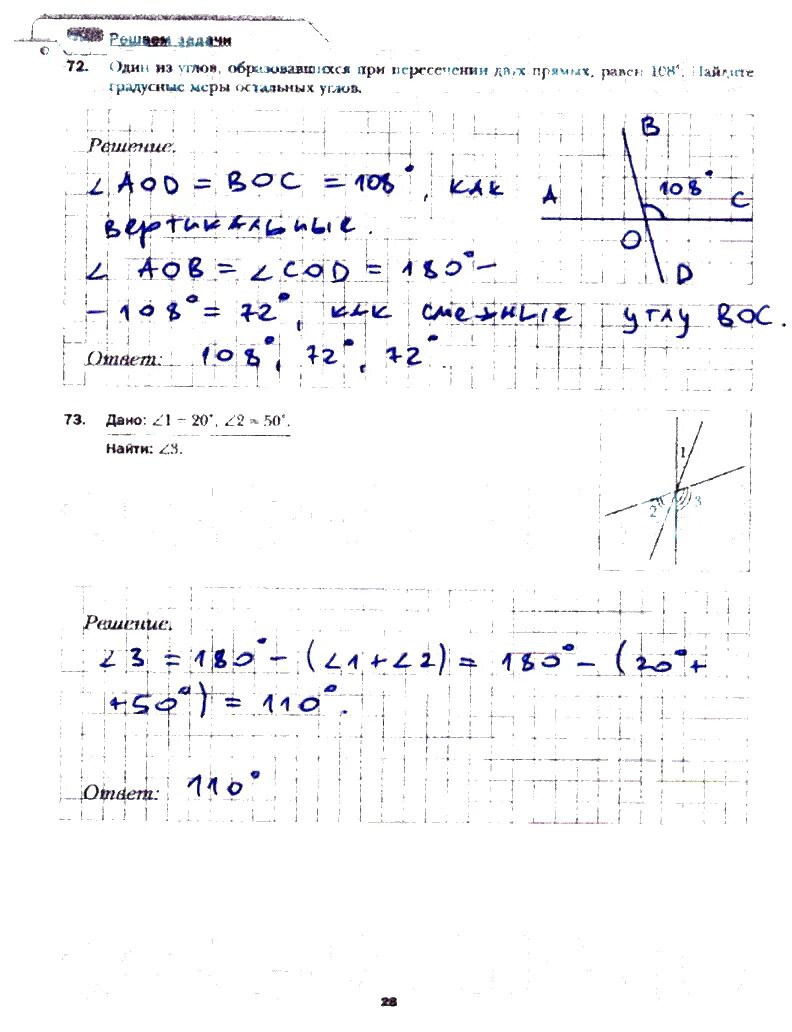 Решаем задачи
©
72. Один из углов, образовавшихся при пересечении двух прямых, равен 108°. Найдите
градусные меры остальных углов.
Решение.
∠AOD = BOC = 108°, как
вертикальные.
∠ AOB = ∠COD = 180° –
– 108° = 72°, как смежные углу BOC.
Ответ: 108°, 72°, 72°.
B
A
108°
C
O
D
73. Дано: ∠1 = 20°, ∠2 = 50°.
Найти: ∠3.
1
2
3
Решение.
∠3 = 180° – (∠1 + ∠2) = 180° – (20° +
+ 50°) = 110°.
Ответ: 110°
28